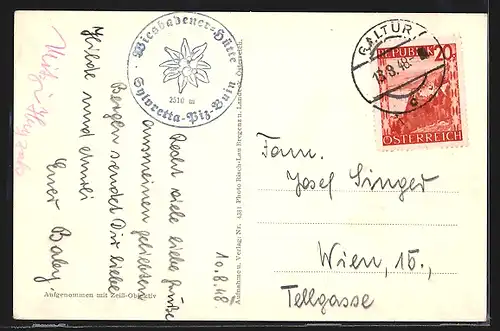 Wiesbadener-Hütte
2510 m
Silvretta-Piz-Buin
GALTÜR
13.8.48
REPUBLIK 20
ÖSTERREICH
10.8.48
Recht viele liebe Grüße
aus meinen geliebten
Bergen sendet Dir liebe
Hilde und
Euer Baby.
Fam.
Josef Singer
Wien, 15.,
Tellgasse
Aufgenommen mit Zeiß-Objektiv
Aufnahme u. Verlag: Nr. 4251 Photo Risch-Lau Bregenz u. Landeck, Österreich.